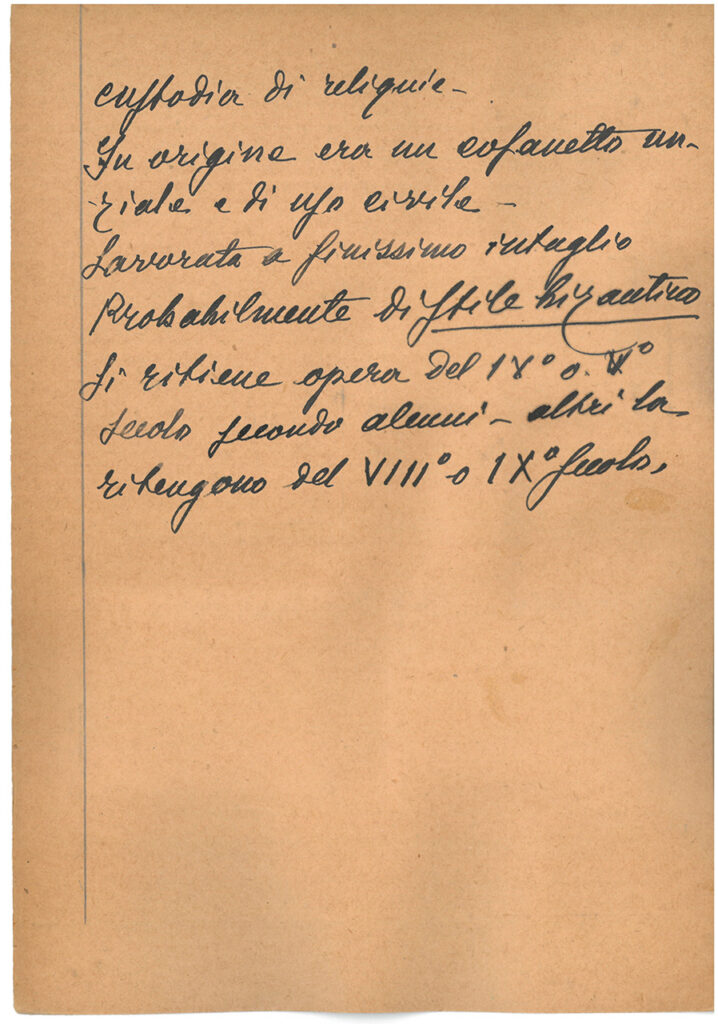 custodia di reliquie -
In origine era un cofanetto nu-
ziale e di uso civile -
Lavorata a finissimo intaglio
Probabilmente di stile bizantino
Si ritiene opera del IX° o X°
secolo secondo alcuni - altri la
ritengono del VIII° o IX° secolo.